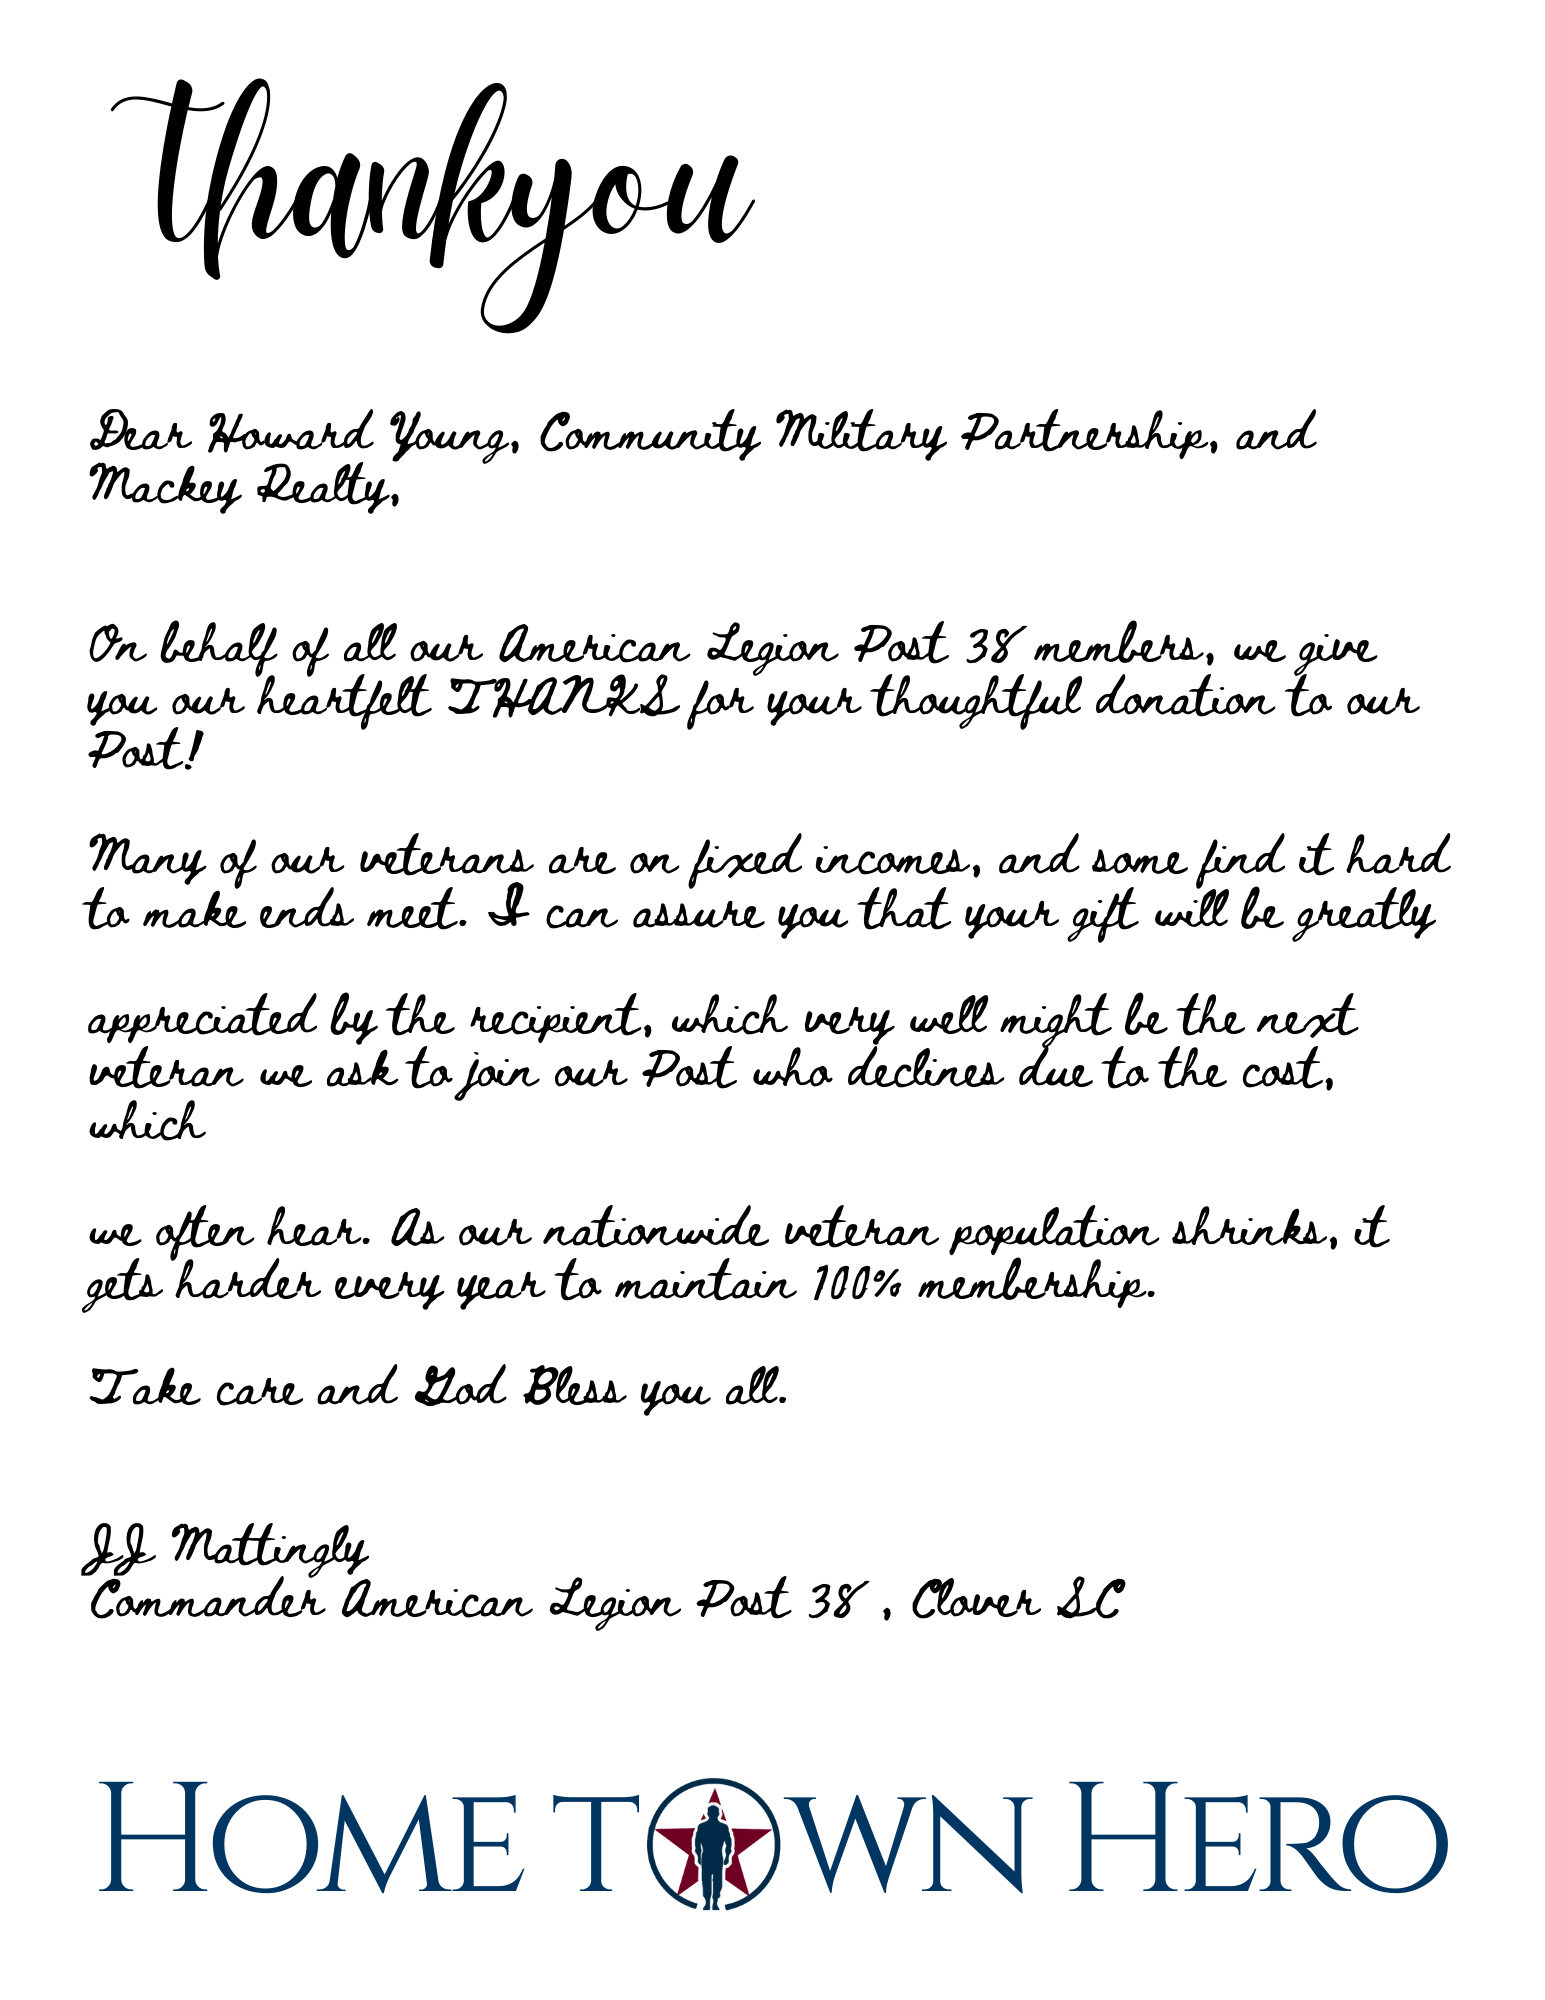 thankyou
Dear Howard Young, Community Military Partnership, and
Mackey Realty,
On behalf of all our American Legion Post 38 members, we give
you our heartfelt THANKS for your thoughtful donation to our
Post!
Many of our veterans are on fixed incomes, and some find it hard
to make ends meet. I can assure you that your gift will be greatly
appreciated by the recipient, which very well might be the next
veteran we ask to join our Post who declines due to the cost,
which
we often hear. As our nationwide veteran population shrinks, it
gets harder every year to maintain 100% membership.
Take care and God Bless you all.
JJ Mattingly
Commander American Legion Post 38 , Clover SC
HOME TOWN HERO